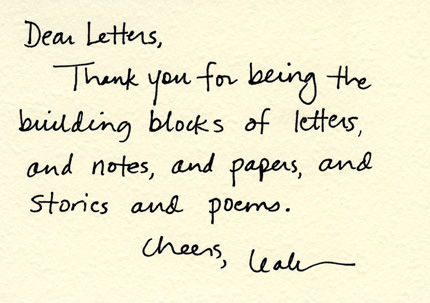 Dear Letters,
Thank you for being the
building blocks of letters,
and notes, and papers, and
stories and poems.
Cheers, Leah